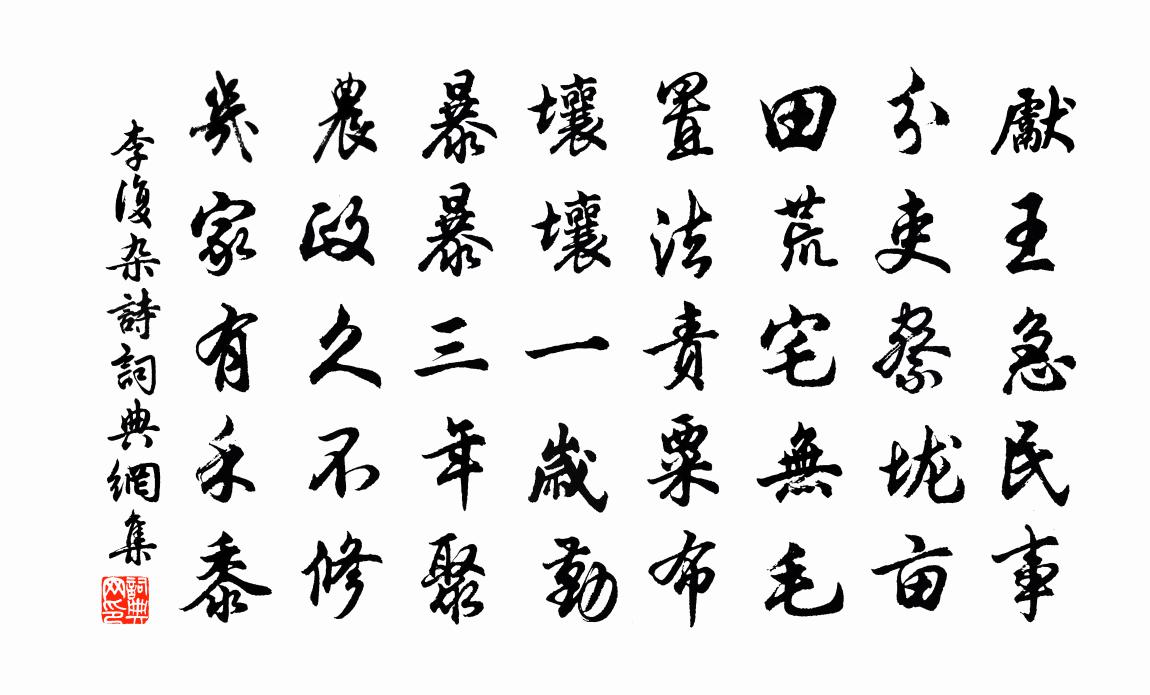 獻王急民事
分吏察垅亩
田荒宅無毛
置法责粟布
壤壤一歲勤
暴暴三年聚
農政久不修
幾家有禾黍
李復杂詩詞典網集
詞典网印